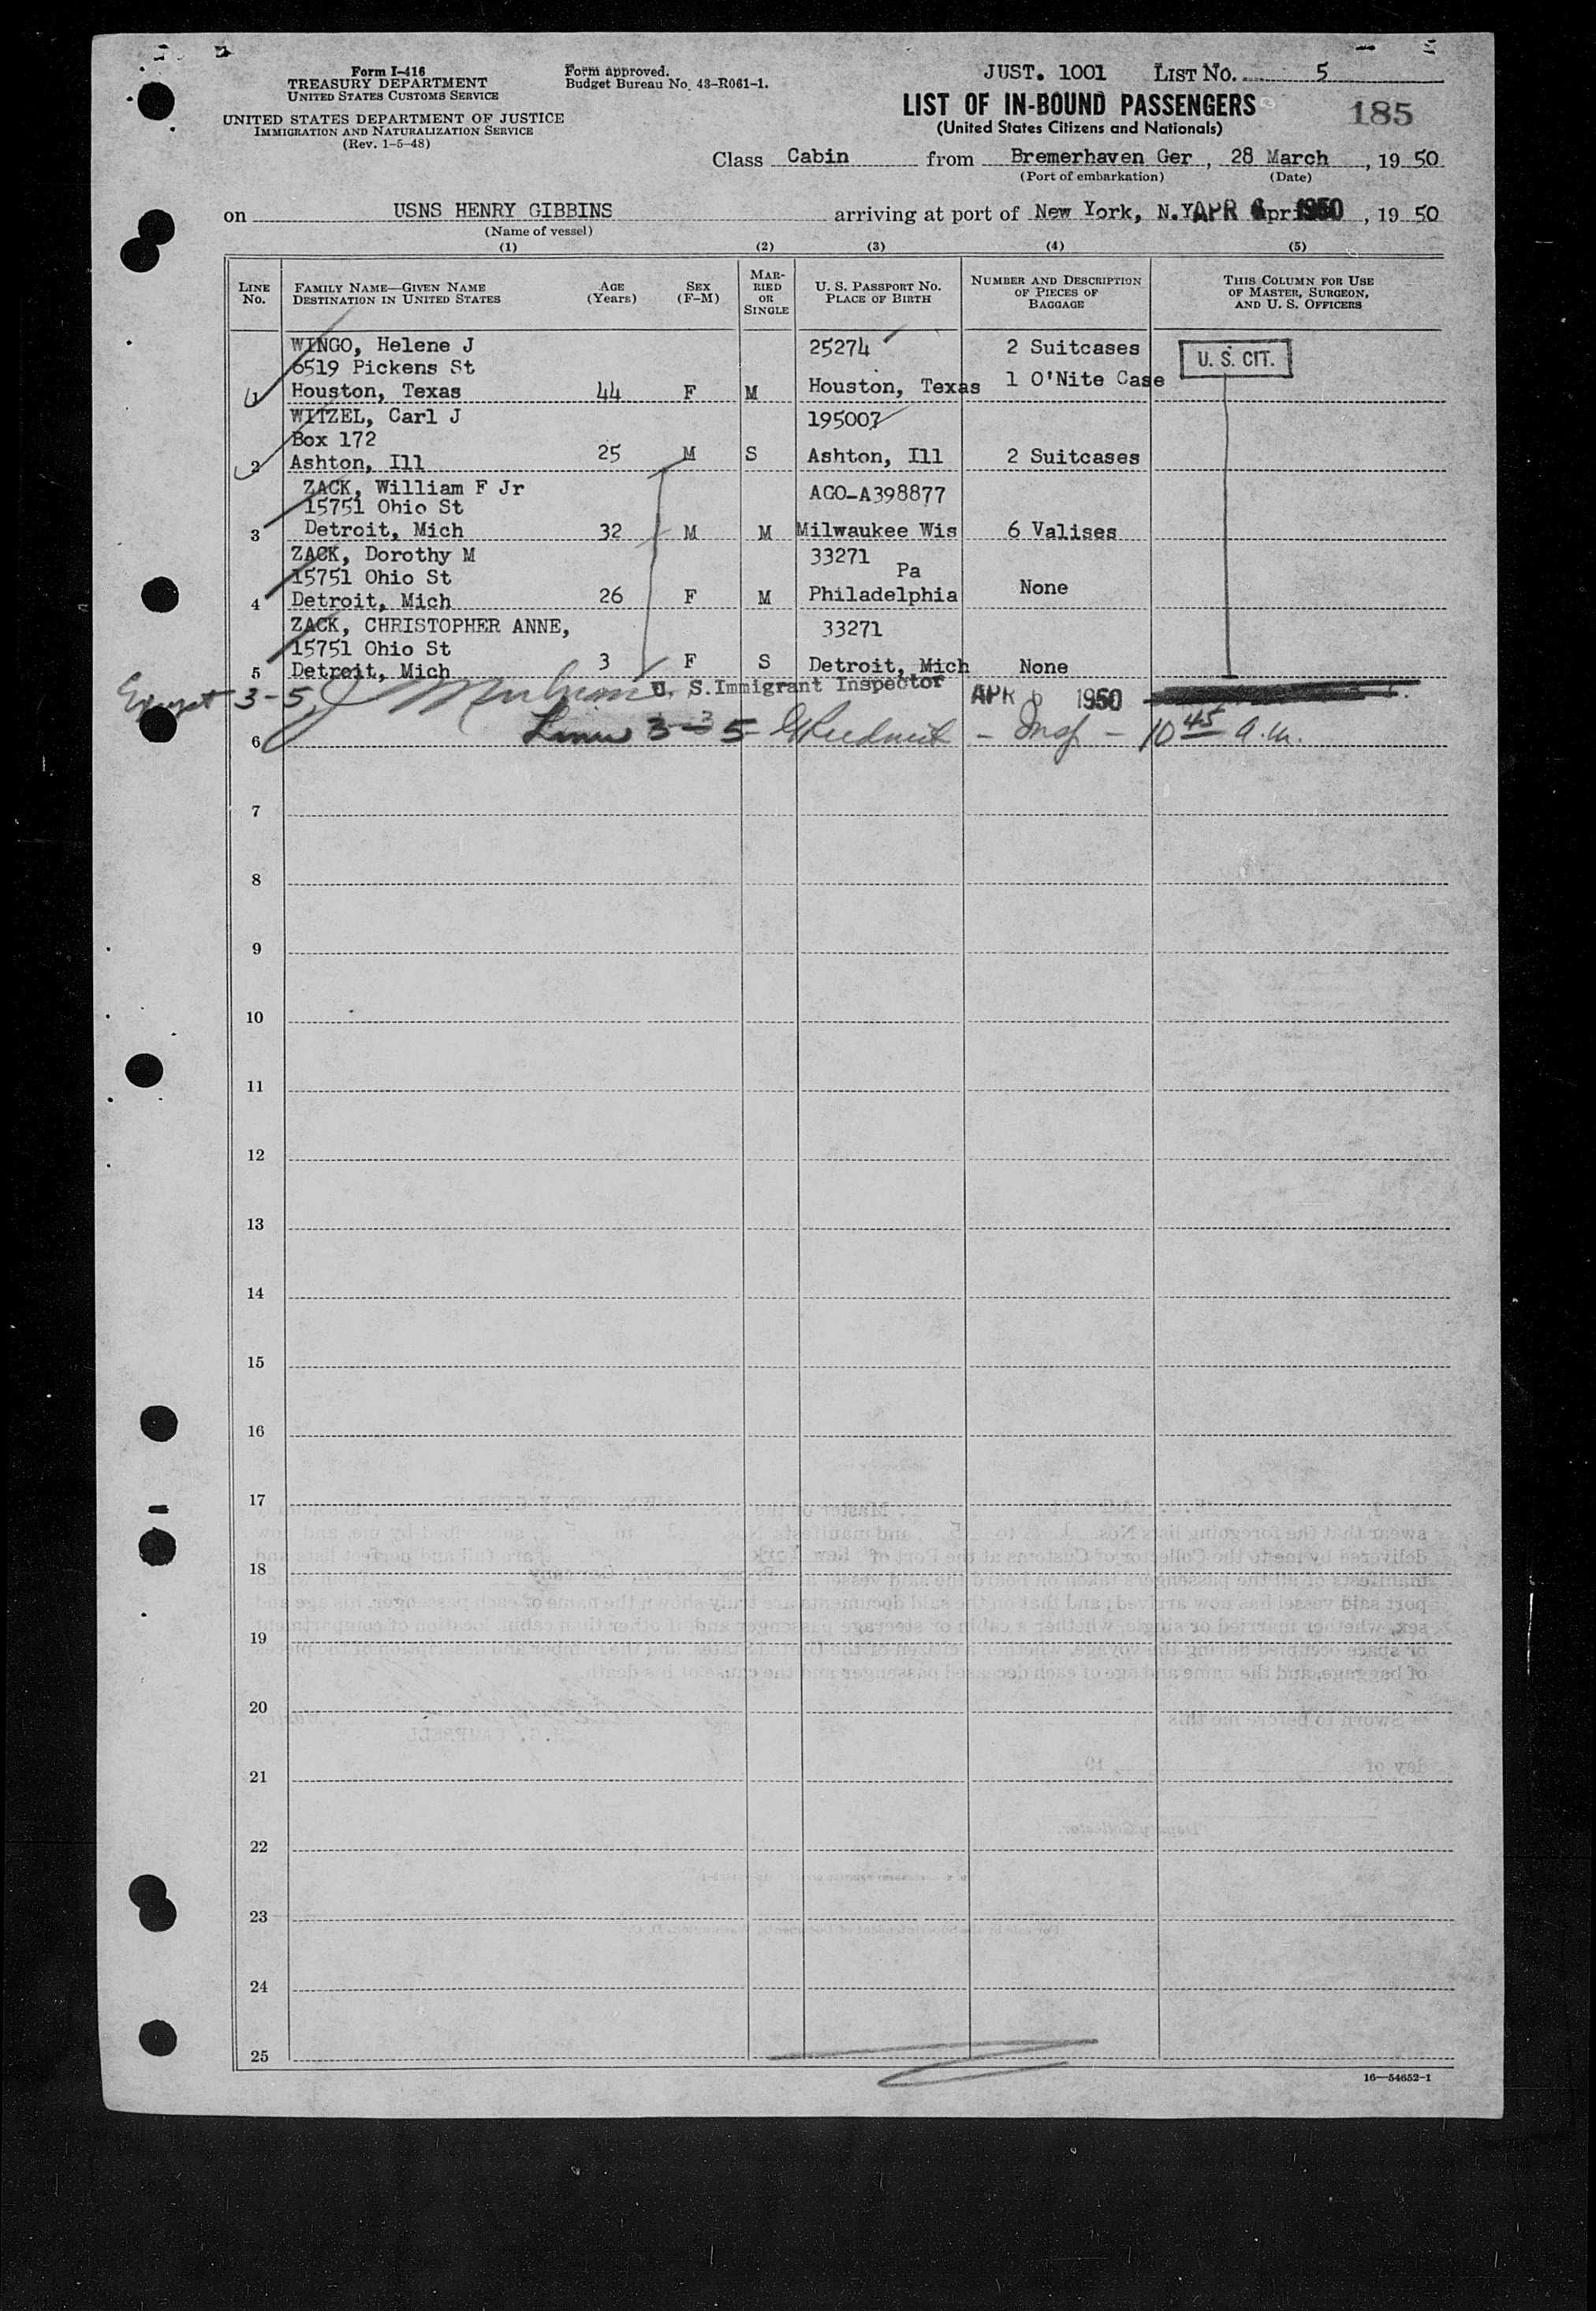 Form I-416
TREASURY DEPARTMENT
UNITED STATES CUSTOMS SERVICE
UNITED STATES DEPARTMENT OF JUSTICE
IMMIGRATION AND NATURALIZATION SERVICE
(Rev. 1-5-48)
Form approved.
Budget Bureau No. 43-R061-1.
JUST. 1001 LIST NO. 5
LIST OF IN-BOUND PASSENGERS
185
(United States Citizens and Nationals)
Class Cabin from Bremerhaven Ger, 28 March, 19 50
(Port of embarkation) (Date)
on USNS HENRY GIBBINS arriving at port of New York, N.Y. APR 6 1950, 19 50
(Name of vessel)
(1) (2) (3) (4) (5)
LINE No.
FAMILY NAME—GIVEN NAME
DESTINATION IN UNITED STATES
AGE
(Years)
SEX
(F-M)
MARRIED
OR
SINGLE
U. S. PASSPORT NO.
PLACE OF BIRTH
NUMBER AND DESCRIPTION
OF PIECES OF
BAGGAGE
THIS COLUMN FOR USE
OF MASTER, SURGEON,
AND U. S. OFFICERS
WINGO, Helene J 25274 2 Suitcases U. S. CIT.
6519 Pickens St
1 Houston, Texas 44 F M Houston, Texas 1 O'Nite Case
WITZEL, Carl J 195007
Box 172
2 Ashton, Ill 25 M S Ashton, Ill 2 Suitcases
ZACK, William F Jr AGO-A398877
15751 Ohio St
3 Detroit, Mich 32 M M Milwaukee Wis 6 Valises
ZACK, Dorothy M 33271
15751 Ohio St Pa
4 Detroit, Mich 26 F M Philadelphia None
ZACK, CHRISTOPHER ANNE, 33271
15751 Ohio St
5 Detroit, Mich 3 F S Detroit, Mich None
Except 3-5 U. S. Immigrant Inspector APR 6 1950
6 Lines 3-5 - Insp - 10 45 a.m.
7
8
9
10
11
12
13
14
15
16
17
18
19
20
21
22
23
24
25
16—54652-1